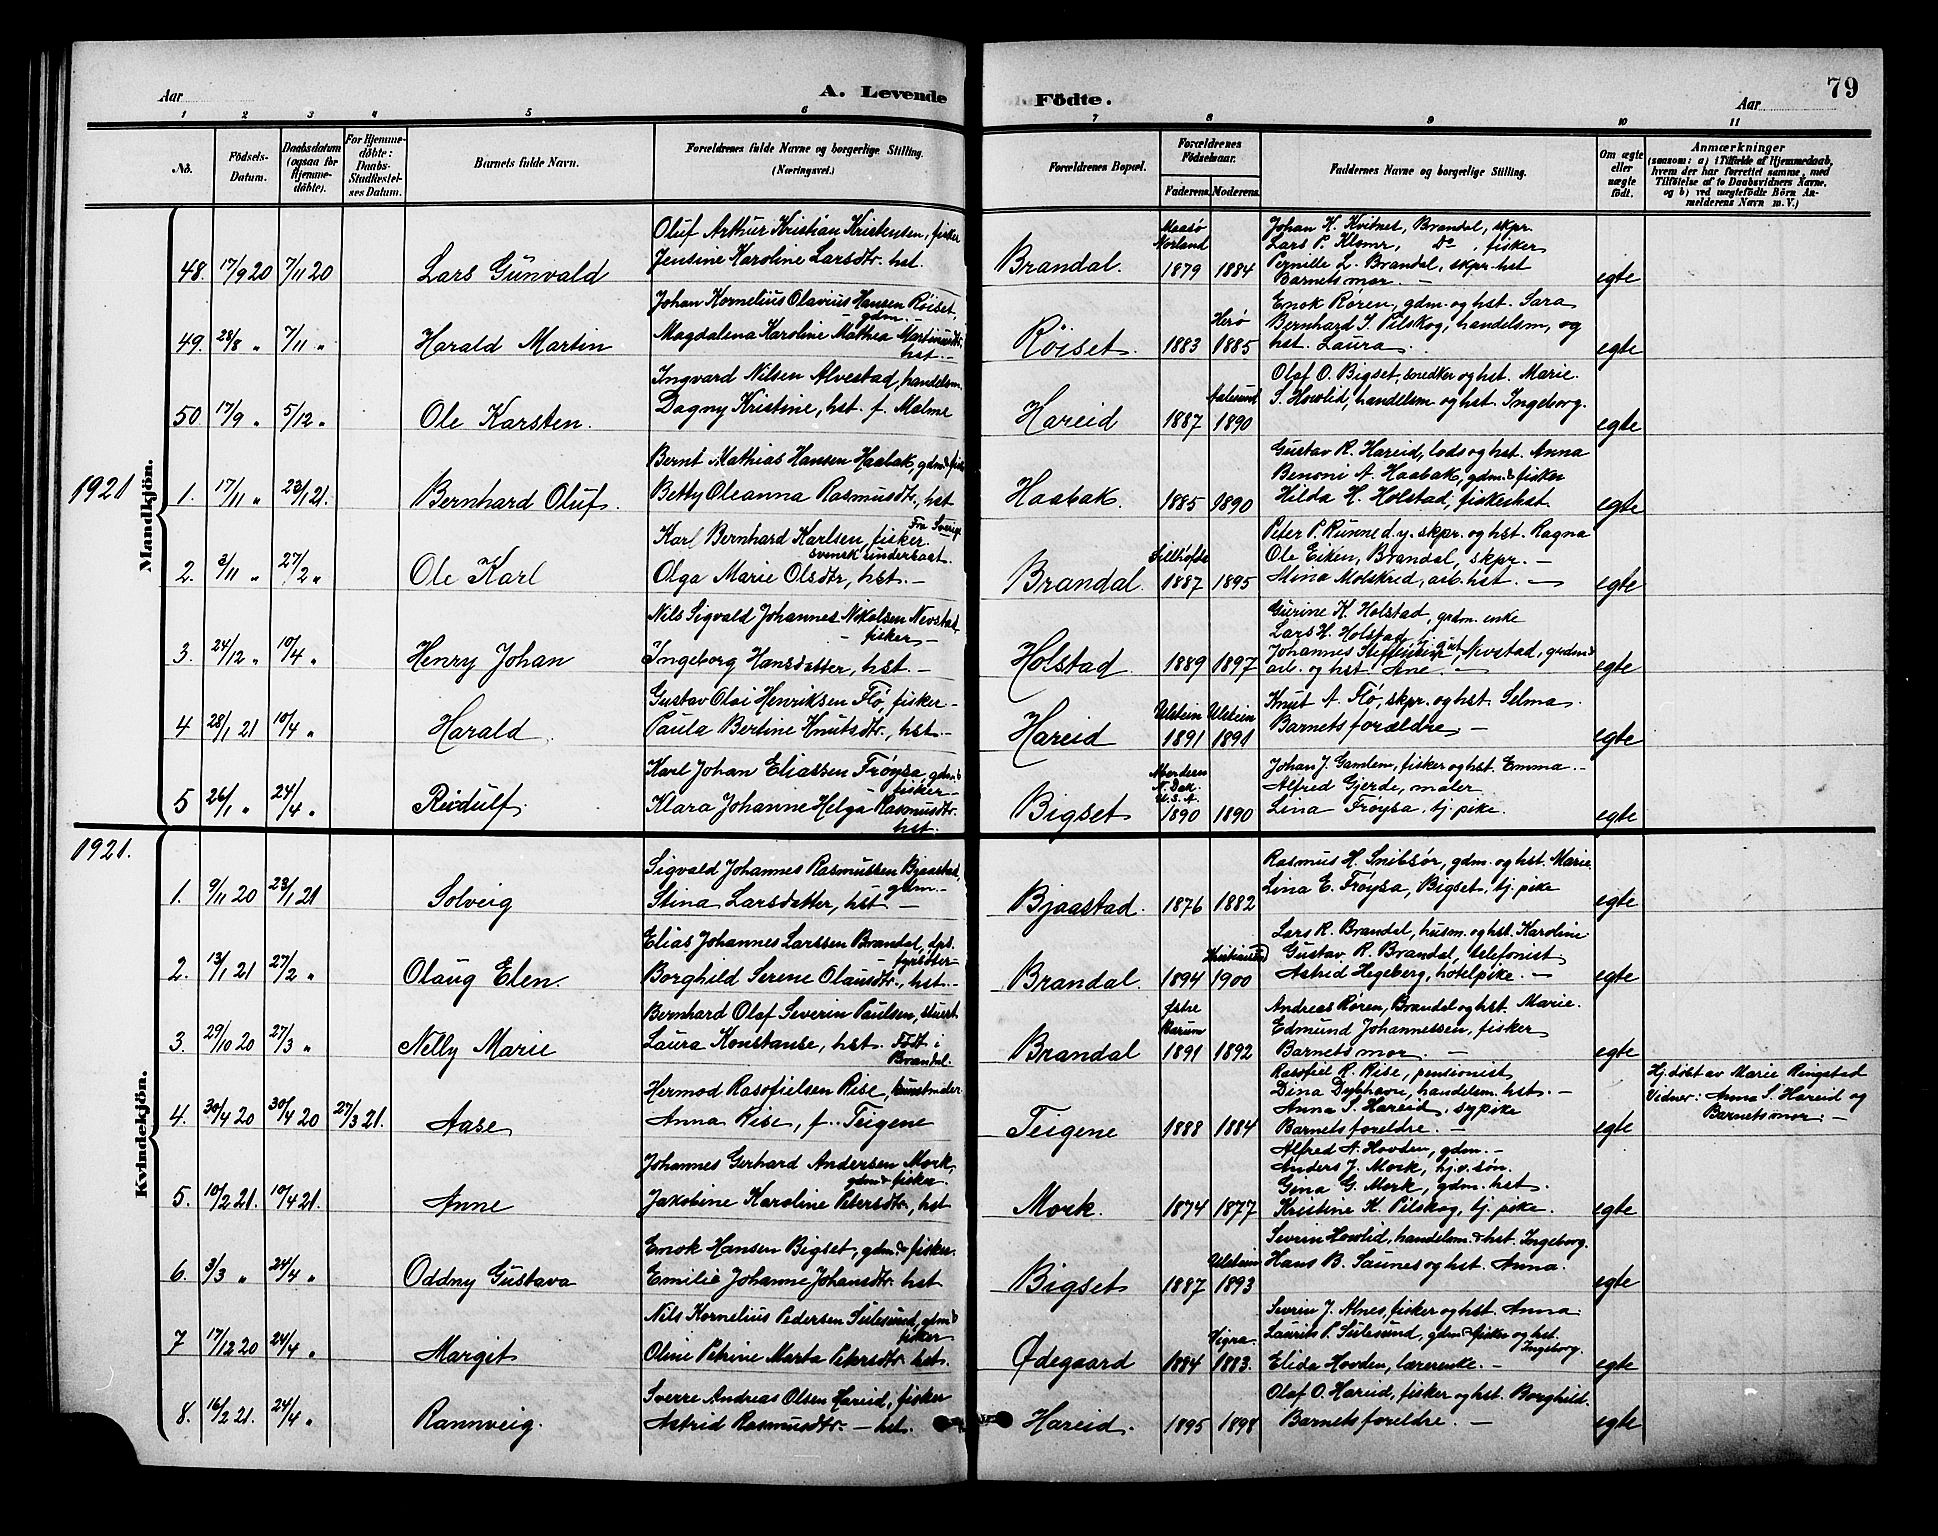 79
Aar
A. Levende Födte.
Aar
1 2 3 4 5 6 7 8 9 10 11
No.
Födsels-Datum.
Daabsdatum (ogsaa för Hjemmedöbte).
For Hjemmedöbte: Daabs-Stadfæstelses Datum.
Barnets fulde Navn.
Forældrenes fulde Navne og borgerlige Stilling. (Næringsvei.)
Forældrenes Bopæl.
Forældrenes Födselsaar.
Faderens. Moderens.
Faddernes Navne og borgerlige Stilling.
Om ægte eller uægte födt.
Anmærkninger
(saasom: a) i Tilfælde af Hjemmedaab, hvem der har forrettet samme, med Tilföielse af to Daabsvidners Navne, og b) ved uægtefödte Börn Anmelderens Navn m. V.)
Mandkjön.
Oluf Arthur Kristian Kristensen, fisker
Jensine Karoline Larsdtr. hst.
48. 17/9 20 7/11 20 Lars Gunvald
Brandal. Maasø Norland 1879 1884
Johan H. Kvitnes, Brandal, skpr.
Lars P. , Do, fisker
Pernille L. Brandal, skpr. hst
Barnets mor. —
egte
Johan Kornelius Olavius Hansen Røiset,
gdm. —
Magdalena Karoline Mathea Martinusdtr.
hst. —
49. 28/8 " 7/11 " Harald Martin
Røiset. 1883 Herø 1885
Enok Røren, gdm. og hst. Sara
Bernhard I. Pilskog, handelsm, og
hst. Laura.
egte
Ingvard Nilsen Alvestad, handelsm.
Dagny Kristine, hst. f. Malme
50. 17/9 " 5/12 " Ole Karsten.
Hareid 1887 Aalesund 1890
Olaf O. Bigset, snedker og hst. Marie.
S. Hovlid, handelsm og hst. Ingeborg.
egte
1921
Bernt Mathias Hansen Haabak, gdm &
Betty Oleanna Rasmusdtr., hst
1. 17/11 " 23/1 21. Bernhard Oluf.
Haabak. 1885 1890
Gustav R. Hareid, lods og hst. Anna
Benoni A. Haabak, gdm & fisker
Hilda H. Holstad, fiskerhst.
egte
Fra Sverige
Karl Bernhard Karlsen, fisker.
svensk undersaat.
Olga Marie Olsdtr, hst. —
2. 3/11 " 27/2 " Ole Karl
Brandal. 1887 1895
Peter P. Runne d.y. skpr. og hst. Ragna
Ole Eiken, Brandal, skpr. —
Mina Molskred, arb. hst. —
egte
Nils Sigvald Johannes Nikolsen Nevstad,
— fisker —
Ingeborg Hansdatter, hst. —
3. 24/12 " 10/4 " Henry Johan
Holstad 1889 1897
Gurine K. Holstad, grdm. enke
Lars H. Holstad, tj. gut,
Johannes Steffensen Nevstad, grdm &
arb. og hst. Ane. —
egte
Gustav Olai Henriksen Flø, fisker —
Paula Bertine Knutsdtr., hst. —
4 28/1 21 10/4 " Harald.
Hareid Ulstein 1891 Ulstein 1891
Knut A. Flø, skpr. og hst. Selma.
Barnets forældre. —
egte
Karl Johan Eliassen Frøysa, gdm &
fisker —
Klara Johanne Helga Rasmusdtr.
hst.
5 26/1 " 24/4 " Reidulf.
Bigset N. Dak. U.S.A. 1890 1890
Johan J. Gamlem, fisker og hst. Emma. —
Alfred Gjerde, maler
Lina Frøysa, tj. pike.
egte
1921.
Kvindekjön.
Sigvald Johannes Rasmussen Bjaastad,
gdm. —
Stina Larsdatter, hst. —
1. 9/11 20 23/1 21 Solveig
Bjaastad. 1876 1882
Rasmus H. Snibsør, gdm. og hst. Marie.
Lina E. Frøysa, Bigset, tj. pike
egte
Elias Johannes Larssen Brandal, dps.
— fyrbøter —
Borghild Serene Olausdtr., hst. —
2. 13/1 21 27/2 " Olaug Elen.
Brandal. 1894 Kristiansund 1900
Lars R. Brandal, husm. og hst. Karoline
Gustav R. Brandal, telefonist
Astrid Hegeberg, hotelpike. —
egte
Bernhard Olaf Severin Paulsen, stuert
Laura Konstanse, hst. Født i
Brandal.
3. 29/10 20 27/3 " Nelly Marie
Brandal Østre Bærum 1891 1892
Andreas Røren, Brandal og hst. Marie.
Edmund Johannessen, fisker
Barnets mor. —
egte
Hermod Rasofielsen Rise, kunstmaler
Anna Rise, f. Teigene
4. 30/4 20 30/4 20 27/3 21. Aase
Teigene 1888 1884
Rasofiel R. Rise, pensionist
Dina Dybhavn, handelsm. hst. —
Anna S. Hareid, sypike
Barnets foreldre. —
egte
Hj. døbt av Marie Ringstad
Vidner: Anna S. Hareid og
Barnets mor. —
Johannes Gerhard Andersen Mork,
gdm & fisker.
Jakobine Karoline Petersdtr., hst
5. 10/2 21. 10/4 21. Anne
Mork. 1874 1877
Alfred A. Hovden, gdm. —
Anders J. Mork, hj.v. søn.
Gina G. Mork, gdm. hst.
Kristine K. Pilskog, tj. pike.
egte
Enok Hansen Bigset, gdm & fisker.
Emilie Johanne Johansdtr. hst
6. 3/3 " 24/4 " Oddny Gustava
Bigset 1887 Ulstein 1893
Severin Hovlid, handelsm & hst. Ingeborg.
Hans B. Saunes og hst. Anna.
egte
Nils Kornelius Pedersen Sulesund, gdm &
fisker
Oline Petrine Marta Petersdtr. hst.
7 17/12 20 24/4 " Margit
Ødegaard 1884 Vigra 1883.
Severin J. Alnes, fisker og hst. Anna.
Laurits P. Sulesund, gdm & fisker og hst.
Ingeborg.
Elida Hovden, lærerenke. —
egte
Sverre Andreas Olsen Hareid, fisker
Astrid Rasmusdtr. — hst.
8. 16/2 21. 24/4 " Rannveig.
Hareid. 1895 1898
Olaf O. Hareid, fisker og hst. Borghild.
Barnets foreldre. —
egte